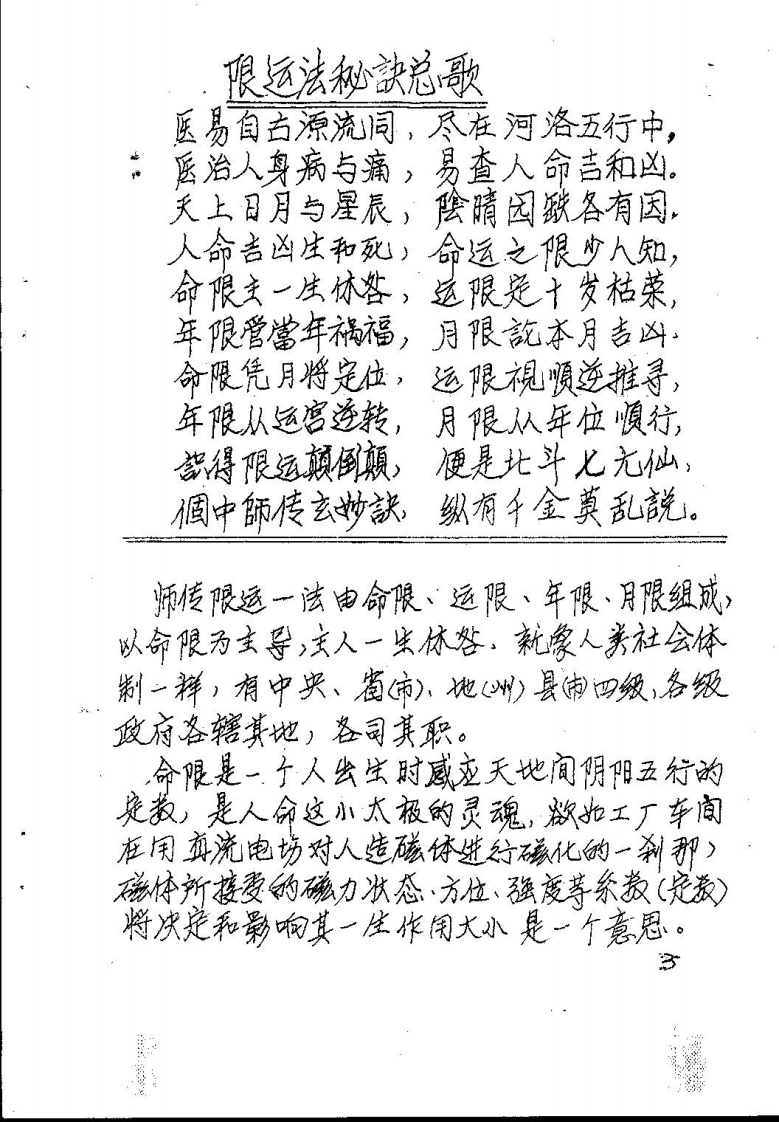 限运法秘訣总歌
医易自古源流同，尽在河洛五行中，
医治人身病与痛，易查人命吉和凶。
天上日月与星辰，陰晴因缺各有因，
人命吉凶生和死，命运之限少人知，
命限主一生休咎，运限定十岁枯荣，
年限管當年祸福，月限訖本月吉凶．
命限凭月将定位，运限視順逆推寻，
年限从运宫逆转，月限从年位順行，
認得限运顛倒顛，便是北斗七元仙，
個中師传玄妙訣，纵有千金莫乱説。
师传限运一法由命限、运限、年限、月限组成，
以命限为主导，主人一生休咎．就像人类社会体
制一样，有中央、省(市)、地(州)县(市)四级，各级
政府各辖其地，各司其职。
命限是一个人出生时感应天地间阴阳五行的
定数，是人命这小太极的灵魂，欲如工厂车间
在用直流电场对人造磁体进行磁化的一刹那，
磁体所接受的磁力状态、方位、强度等系数(定数)
将决定和影响其一生作用大小是一个意思。
3